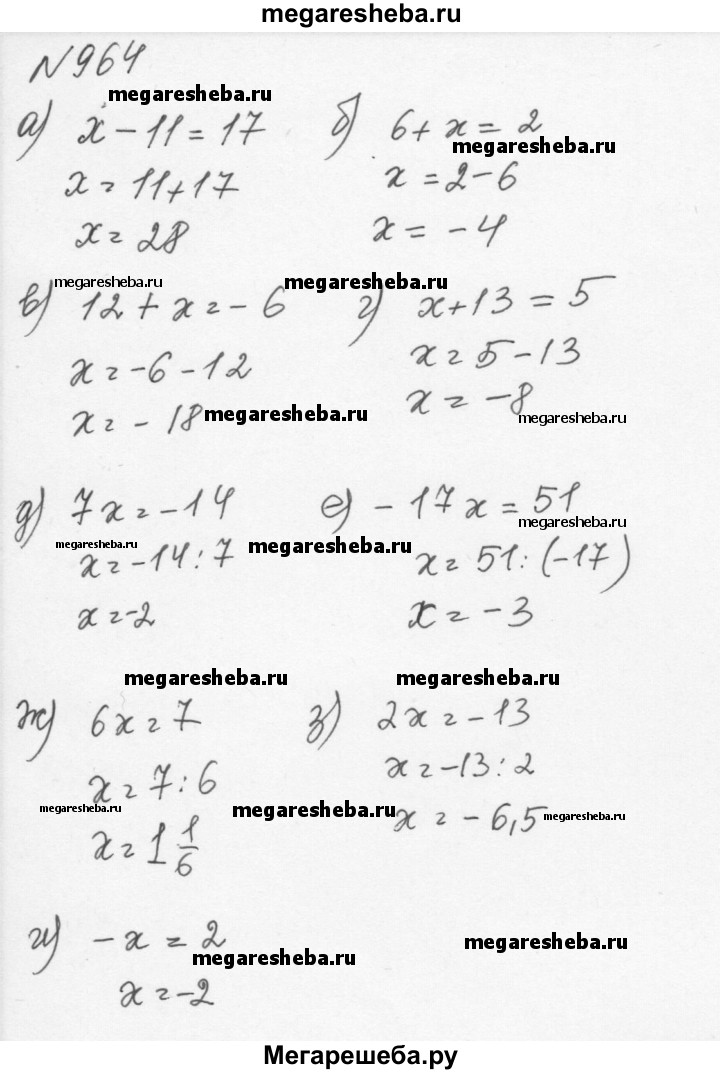 megaresheba.ru
N 964
megaresheba.ru
а) x - 11 = 17
x = 11 + 17
x = 28
б) 6 + x = 2
megaresheba.ru
x = 2 - 6
x = - 4
megaresheba.ru
в) 12 + x = - 6
x = -6 - 12
x = - 18
megaresheba.ru
megaresheba.ru
г) x + 13 = 5
x = 5 - 13
x = -8
megaresheba.ru
д) 7x = -14
megaresheba.ru
x = -14 : 7
x = -2
megaresheba.ru
е) - 17x = 51
megaresheba.ru
x = 51 : (-17)
x = - 3
megaresheba.ru
ж) 6x = 7
x = 7 : 6
megaresheba.ru
x = 1 1/6
megaresheba.ru
megaresheba.ru
з) 2x = - 13
x = -13 : 2
x = - 6,5
megaresheba.ru
и) - x = 2
megaresheba.ru
x = -2
megaresheba.ru
Мегарешеба.ру